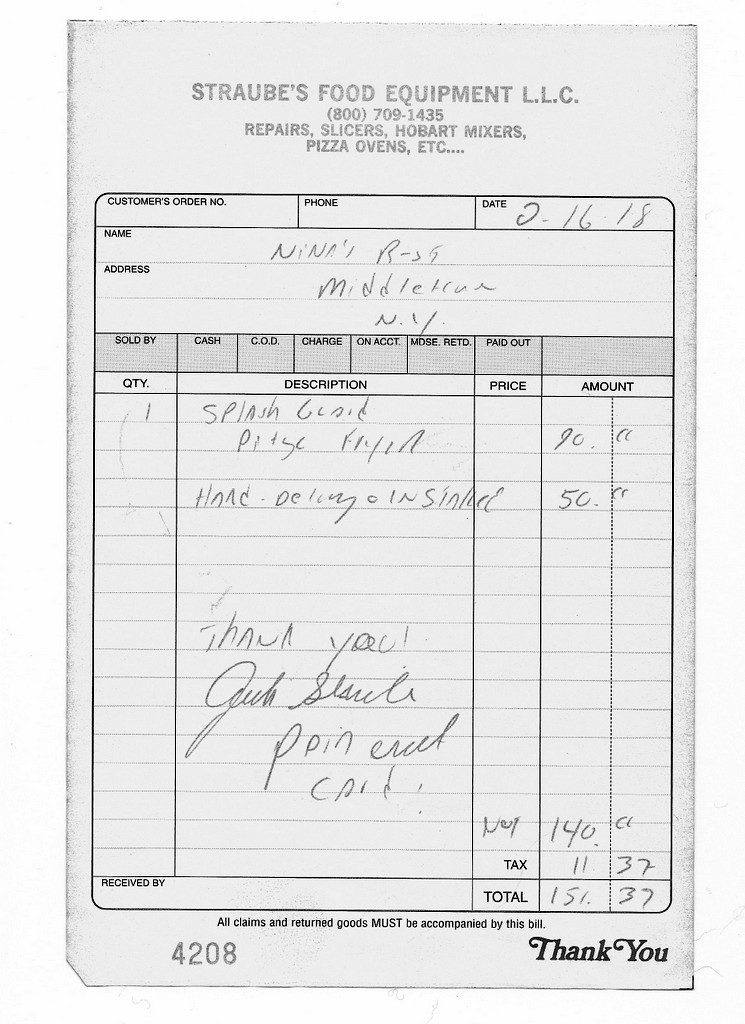 STRAUBE'S FOOD EQUIPMENT L.L.C.
(800) 709-1435
REPAIRS, SLICERS, HOBART MIXERS,
PIZZA OVENS, ETC....
CUSTOMER'S ORDER NO. PHONE DATE 2-16-18
NAME NiNA's
ADDRESS Middletown
N.Y.
SOLD BY CASH C.O.D. CHARGE ON ACCT. MDSE. RETD. PAID OUT
QTY. DESCRIPTION PRICE AMOUNT
1 SPLASH
90.
HAND- INStAlled 50.
THANK you!
PAID
CARD!
140.
TAX 11 37
RECEIVED BY
TOTAL 151. 37
All claims and returned goods MUST be accompanied by this bill.
4208 Thank You